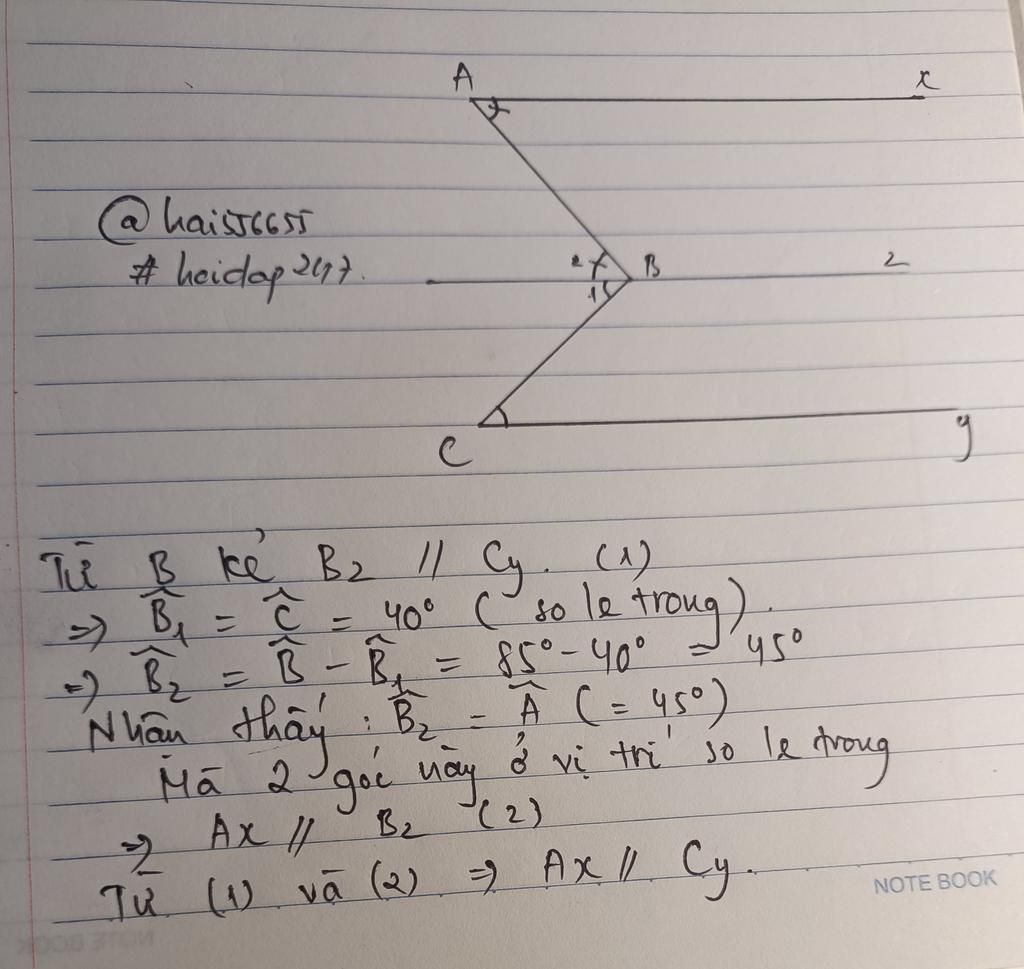 A x
@hai556655
# hoidap247.
2 B z
1
C y
Từ B kẻ Bz // Cy. (1)
=> B̂₁ = Ĉ = 40° ( so le trong).
=> B̂₂ = B̂ - B̂₁ = 85° - 40° = 45°
Nhận thấy : B̂₂ = Â ( = 45°)
Mà 2 góc này ở vị trí so le trong
=> Ax // Bz (2)
Từ (1) và (2) => Ax // Cy.
NOTE BOOK